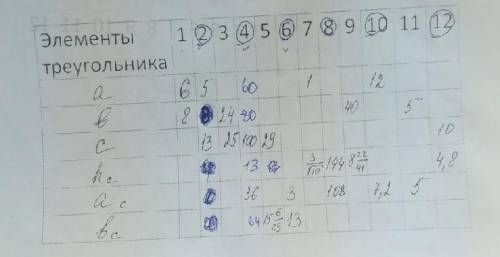 Элементы треугольника 1 2 3 4 5 6 7 8 9 10 11 12
a 6 5 60 1 12
в 8 24 80 40 5
c 13 25 100 29 10
hc 3/√10 144 8 22/41 4,8
ac 36 3 108 7,2 5
вc 64 15 6/29 13